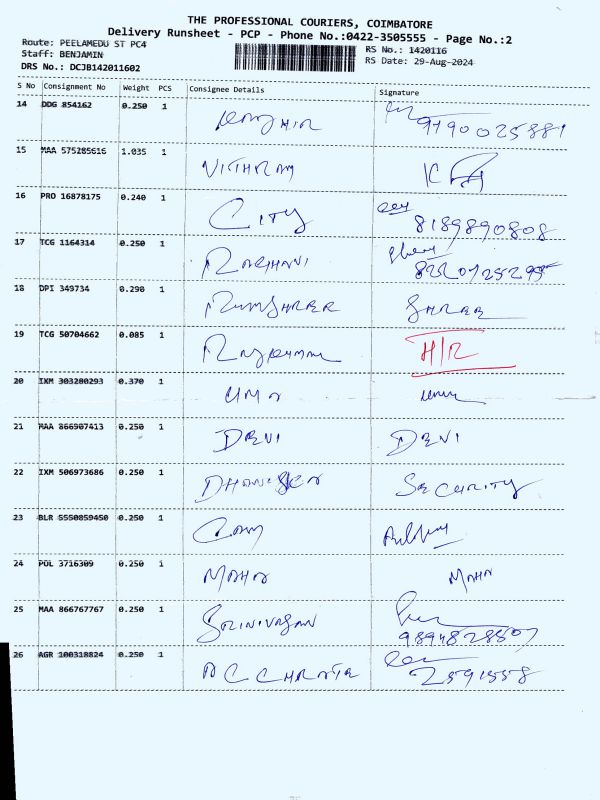 THE PROFESSIONAL COURIERS, COIMBATORE
Delivery Runsheet - PCP - Phone No.:0422-3505555 - Page No.:2
Route: PEELAMEDU ST PC4
Staff: BENJAMIN
DRS No.: DCJB142011602
RS No.: 1420116
RS Date: 29-Aug-2024
S No Consignment No Weight PCS Consignee Details Signature
14 DDG 854162 0.250 1 9790025881
15 MAA 575285616 1.035 1 VITHRAM
16 PRO 16878175 0.240 1 CITY 8189890808
17 TCG 1164314 0.250 1
18 DPI 349734 0.290 1
19 TCG 50704662 0.085 1 H/R
20 IXM 303280293 0.370 1 UMA
21 MAA 866907413 0.250 1 DEVI DEVI
22 IXM 506973686 0.250 1 SECURITY
23 BLR 5550859450 0.250 1
24 POL 3716309 0.250 1 MAHA MAHA
25 MAA 866767767 0.250 1 SRINIVASAN 9894828507
26 AGR 100318824 0.250 1 2591558